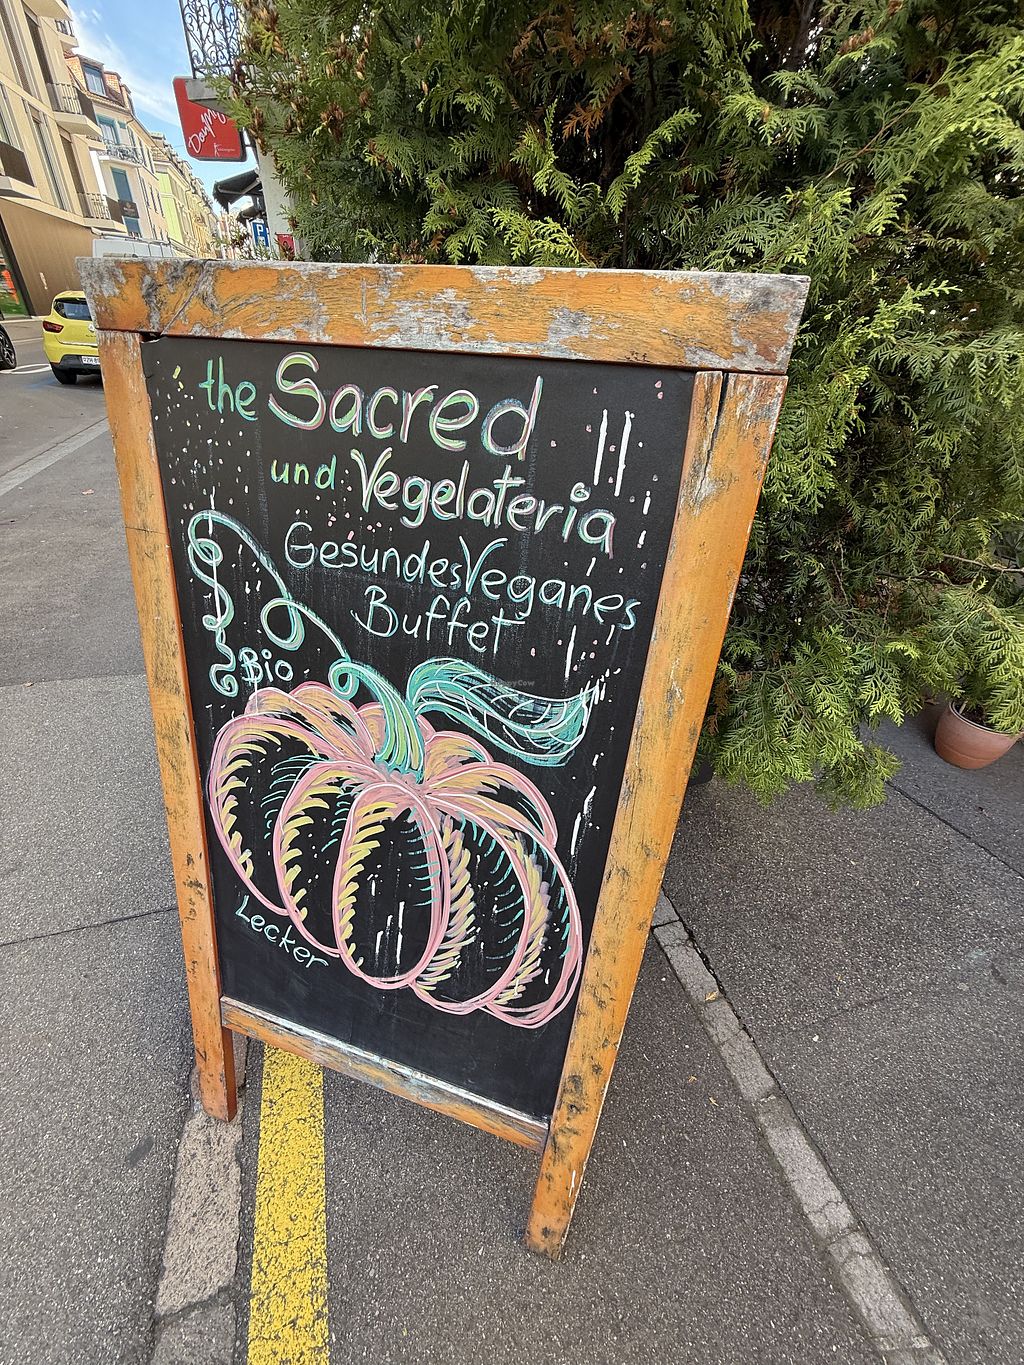 the Sacred
und Vegelateria
Gesundes Veganes
Buffet
Bio
Lecker
P